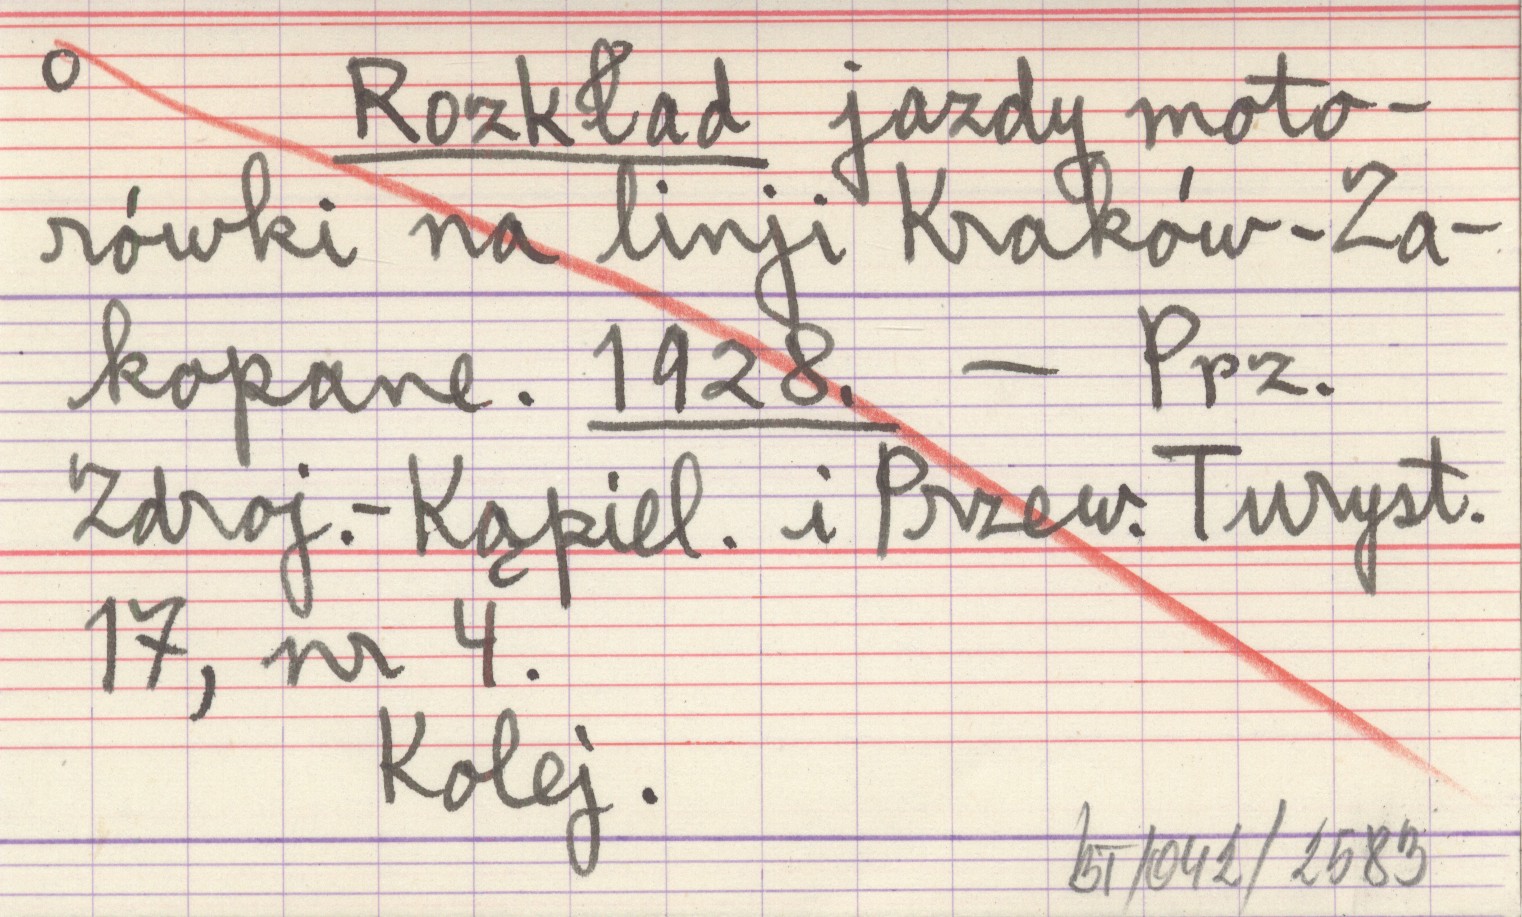 o Rozkład jazdy moto-
rówki na linji Kraków-Za-
kopane. 1928. — Prz.
Zdroj.-Kąpiel. i Przew. Turyst.
17, nr 4.
Kolej.
BT/042/2583